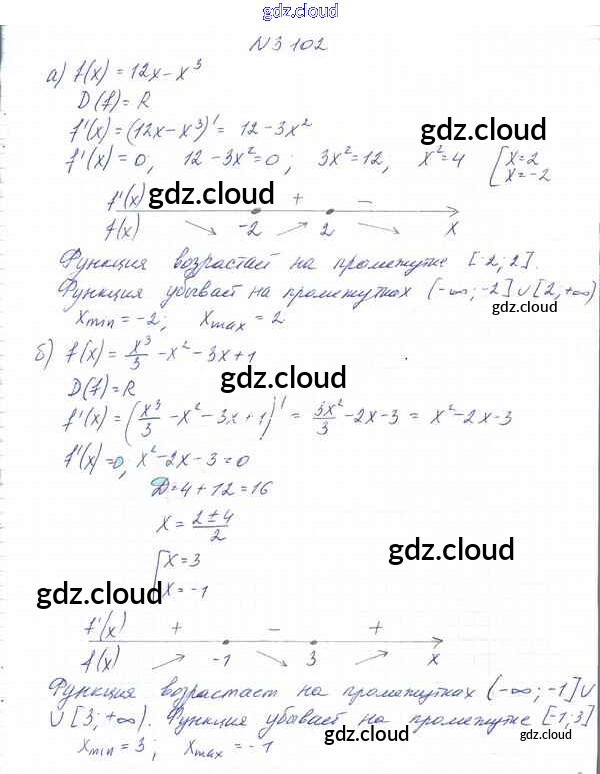 gdz.cloud
N 3 102
а) f(x) = 12x - x³
D(f) = R
f'(x) = (12x - x³)' = 12 - 3x²
gdz.cloud
f'(x) = 0, 12 - 3x² = 0; 3x² = 12, x² = 4 [x = 2
x = -2
f'(x) gdz.cloud + -
f(x) -2 2 x
Функция возрастает на промежутке [-2; 2].
Функция убывает на промежутках (-∞; -2] ∪ [2, +∞)
gdz.cloud
xmin = -2; xmax = 2
б) f(x) = x³/3 - x² - 3x + 1
gdz.cloud
D(f) = R
f'(x) = (x³/3 - x² - 3x + 1)' = 3x²/3 - 2x - 3 = x² - 2x - 3
f'(x) = 0, x² - 2x - 3 = 0
D = 4 + 12 = 16
x = (2 ± 4)/2
gdz.cloud
[x = 3
x = -1
gdz.cloud
f'(x) + - +
f(x) -1 3 x
Функция возрастает на промежутках (-∞; -1] ∪
∪ [3; +∞). Функция убывает на промежутке [-1; 3]
gdz.cloud
xmin = 3; xmax = -1
gdz.cloud